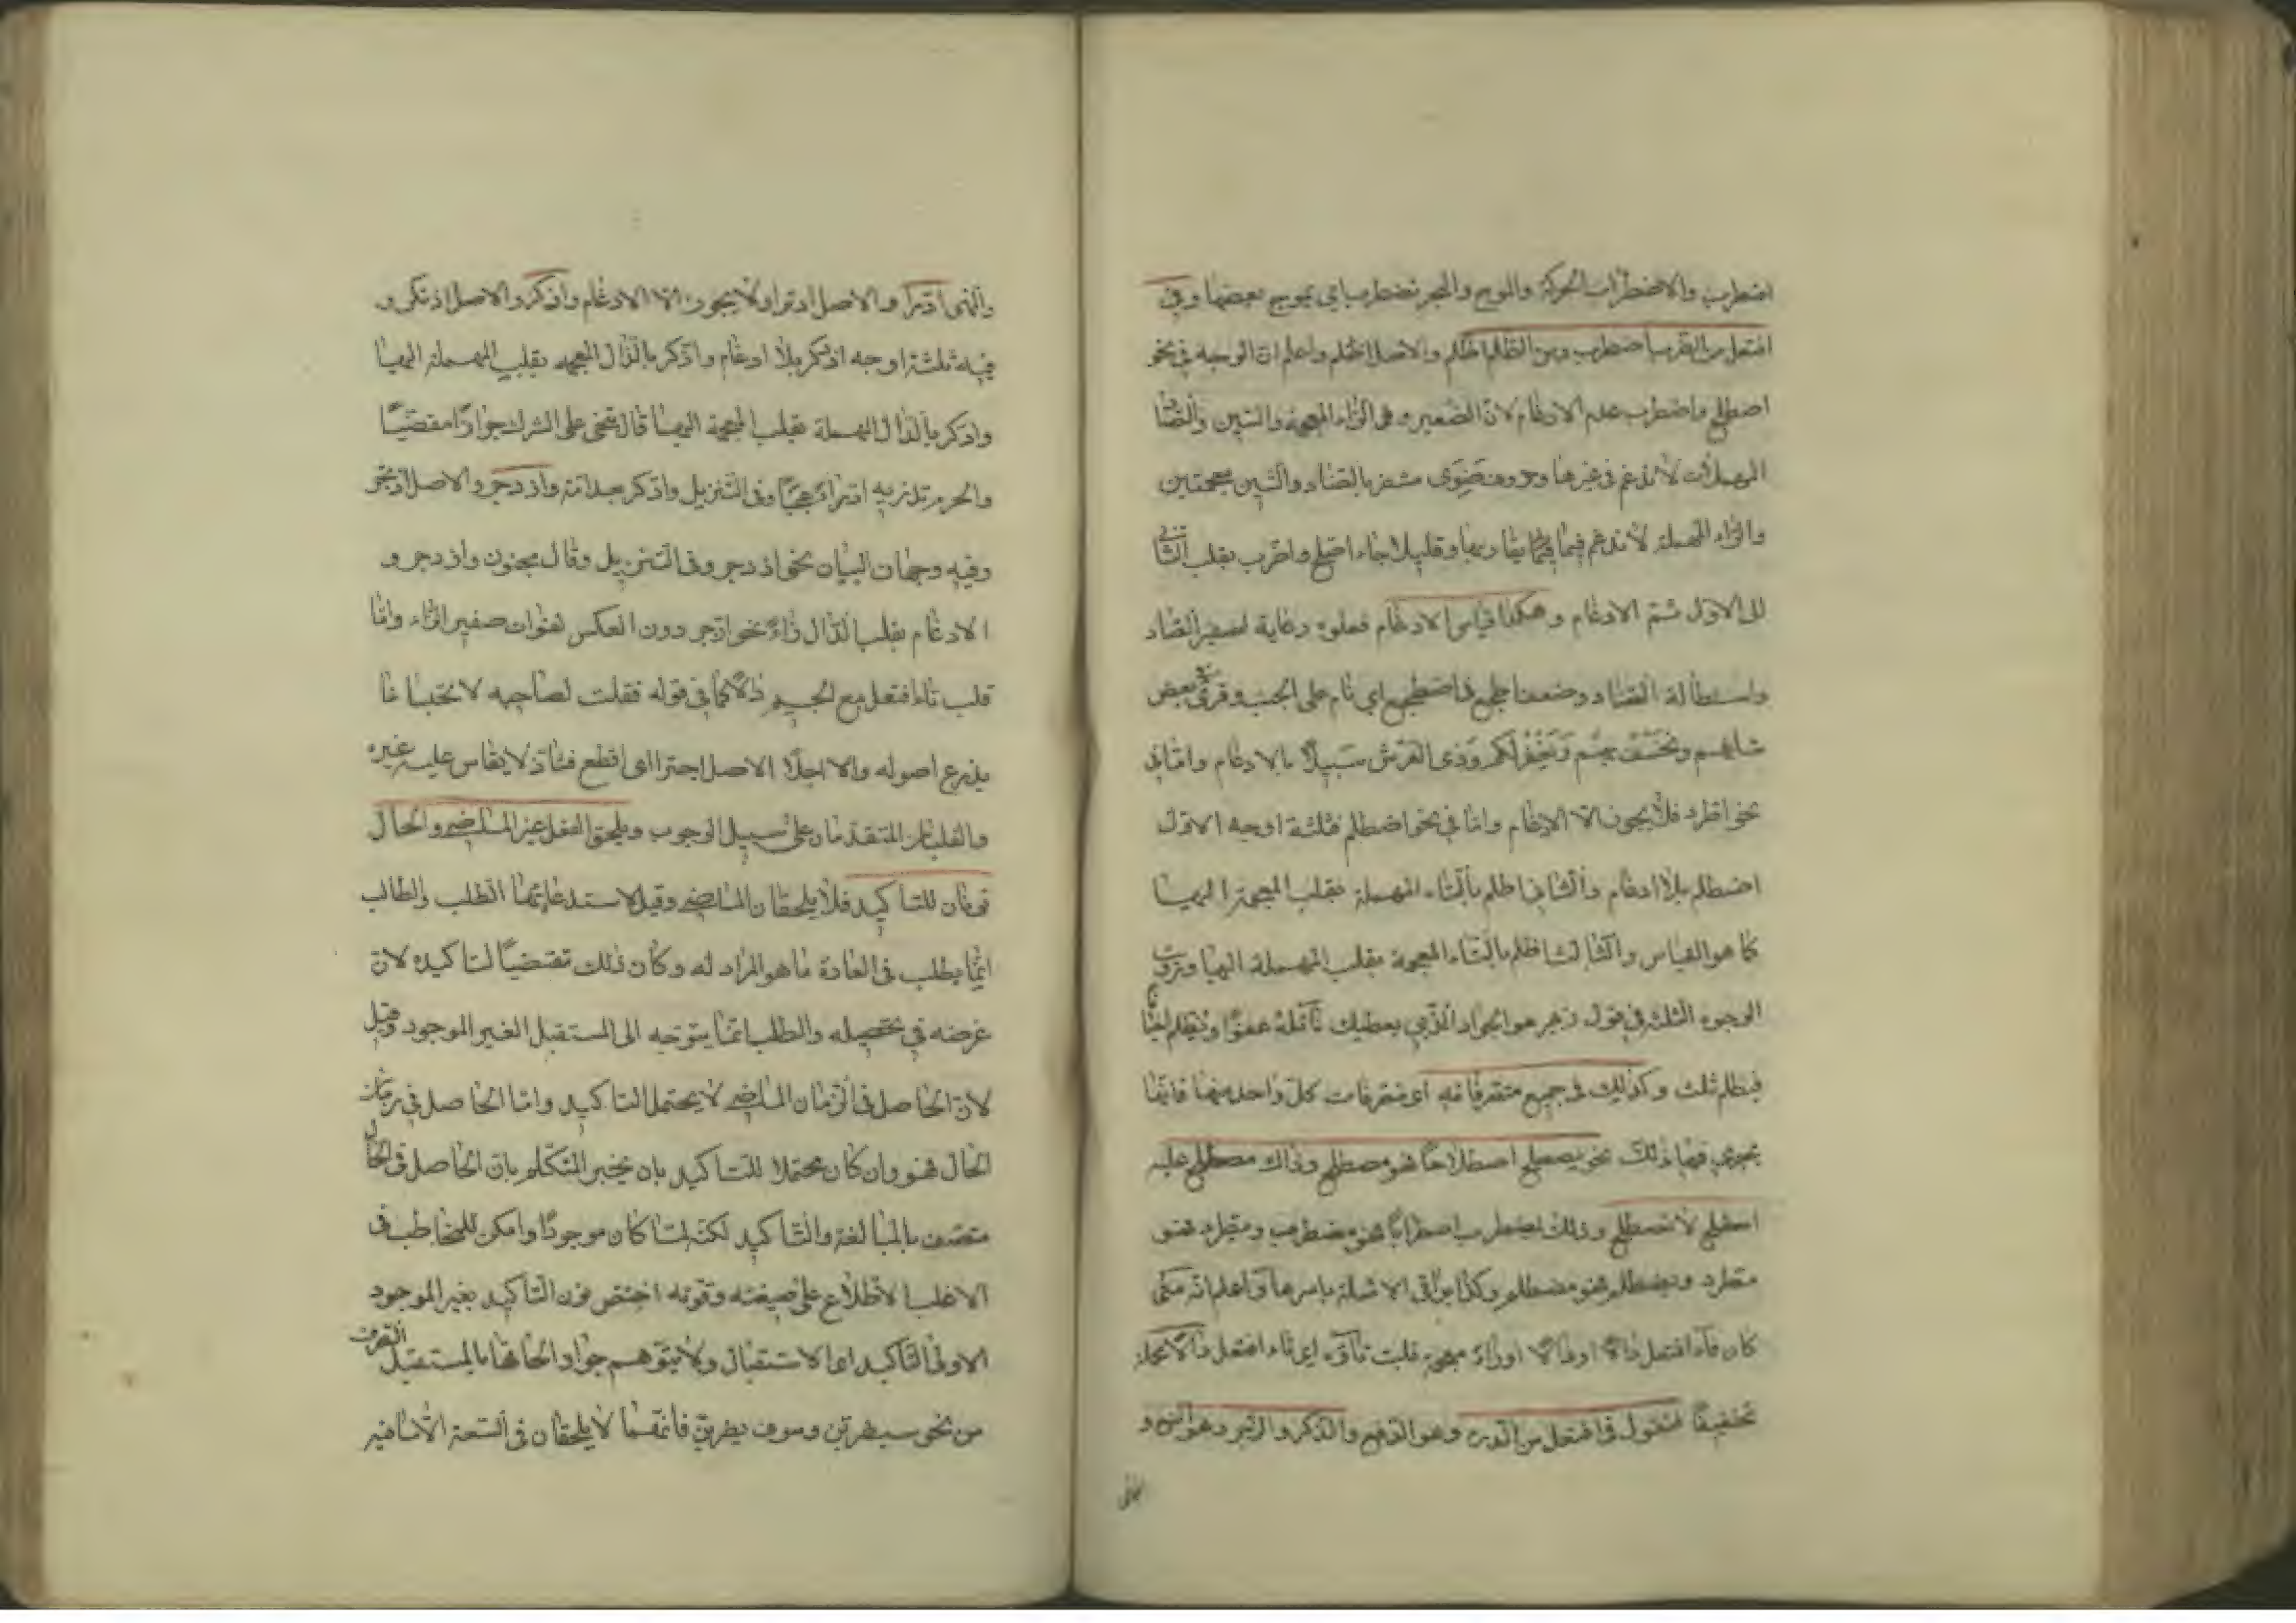 اضطرب والاضطراب الحركة والموج والبحر تضطرب اي يموج بعضها وفي
افتعل من الضرب اضطرب ومن الظلم اظلم والاصل اظتلم واعلم ان الوجه في نحو
اصطلح واضطرب عدم الادغام لان الصفير وهي الزاء المعجمة والسين والصاد
المهملات لا تدغم في غيرها وحروف ضوى مشفر بالضاد والشين معجمتين
والراء المهملة لا تدغم فيما يقاربها وقليلا جاء اصلح واضرب بقلب الثاني
الى الاول ثم الادغام وهكذا قياس الادغام فعلوه رعاية لصفير الصاد
واستطالة الضاد وضعف اطجع في اضطجع اي نام على الجنب وقرئ بعض
شانهم ونخسف بهم ويغفر لكم وذي العرش سبيلا بالادغام واما في
نحو اطرد فلا يجوز الا الادغام واما في نحو اضطلم فثلثة اوجه الاول
اضطلم بلا ادغام والثاني اطلم بالطاء المهملة بقلب المعجمة اليها
كما هو القياس والثالث اظلم بالظاء المعجمة بقلب المهملة اليها ورويت
الوجوه الثلثة في قول زهير هو الجواد الذي يعطيك نائله عفوا ويظلم احيانا
فيظلم ثلث وكذلك في جميع متصرفاته اي متصرفات كل واحد منها فانها
يجري فيها ذلك نحو يصطلح اصطلاحا فهو مصطلح وذاك مصطلح عليه
اصطلح لا تصطلح وذلك يضطرب اضطرابا فهو مضطرب ويطرد فهو
مطرد ويضطلم فهو مضطلم وكذا بواقي الامثلة باسرها واعلم انه متى
كان فاء افتعل دالا او ذالا او زاء معجمة قلبت تاؤه اي تاء افتعل دالا مهملة
تخفيفا فتقول في افتعل من الدرء وهو الدفع والذكر والزجر وهو المنع و
والنهى ادرا والاصل ادترا ولا يجوز الا الادغام واذكر والاصل اذتكر و
فيه ثلثة اوجه اذدكر بلا ادغام واذكر بالذال المعجمة بقلب المهملة اليها
وادكر بالدال المهملة بقلب المعجمة اليها قال تنحى على الشوك جرازا مقضبا
والهرم تذريه اذدراء عجبا وفي التنزيل وادكر بعد امة وازدجر والاصل ازتجر
وفيه وجهان البيان نحو ازدجر وفي التنزيل وقالوا مجنون وازدجر و
الادغام بقلب الدال زاء نحو ازجر دون العكس لفوات صفير الزاء واما
قلب تاء افتعل مع الجيم دالا كما في قوله فقلت لصاحبي لا تحبسانا
بنزع اصوله واجدز الاصل اجتز اي اقطع فشاذ لا يقاس عليه غيره
والقلبان المتقدمان على سبيل الوجوب ويلحق الفعل غير الماضي والحال
نونان للتاكيد فلا يلحقان الماضي وقيل لاستدعائهما الطلب والطالب
انما يطلب في العادة ما هو المراد له وكان ذلك مقتضيا لتاكيده لان
غرضه في تحصيله والطلب انما يتوجه الى المستقبل الغير الموجود وقيل
لان الحاصل في الزمان الماضي لا يحتمل التاكيد واما الحاصل في زمان
الحال فهو وان كان محتملا للتاكيد بان يخبر المتكلم بان الحاصل في الحال
متصف بالمبالغة والتاكيد لكنه لما كان موجودا وامكن للمخاطب في
الاغلب الاطلاع على ضعفه وقوته اختص نون التاكيد بغير الموجود
الاولى بالتاكيد اي الاستقبال ولا يتوهم جواز الحاقها بالمستقبل الصرف
من نحو سيضربن وسوف يضربن فانهما لا يلحقان في السعة الا ما فيه